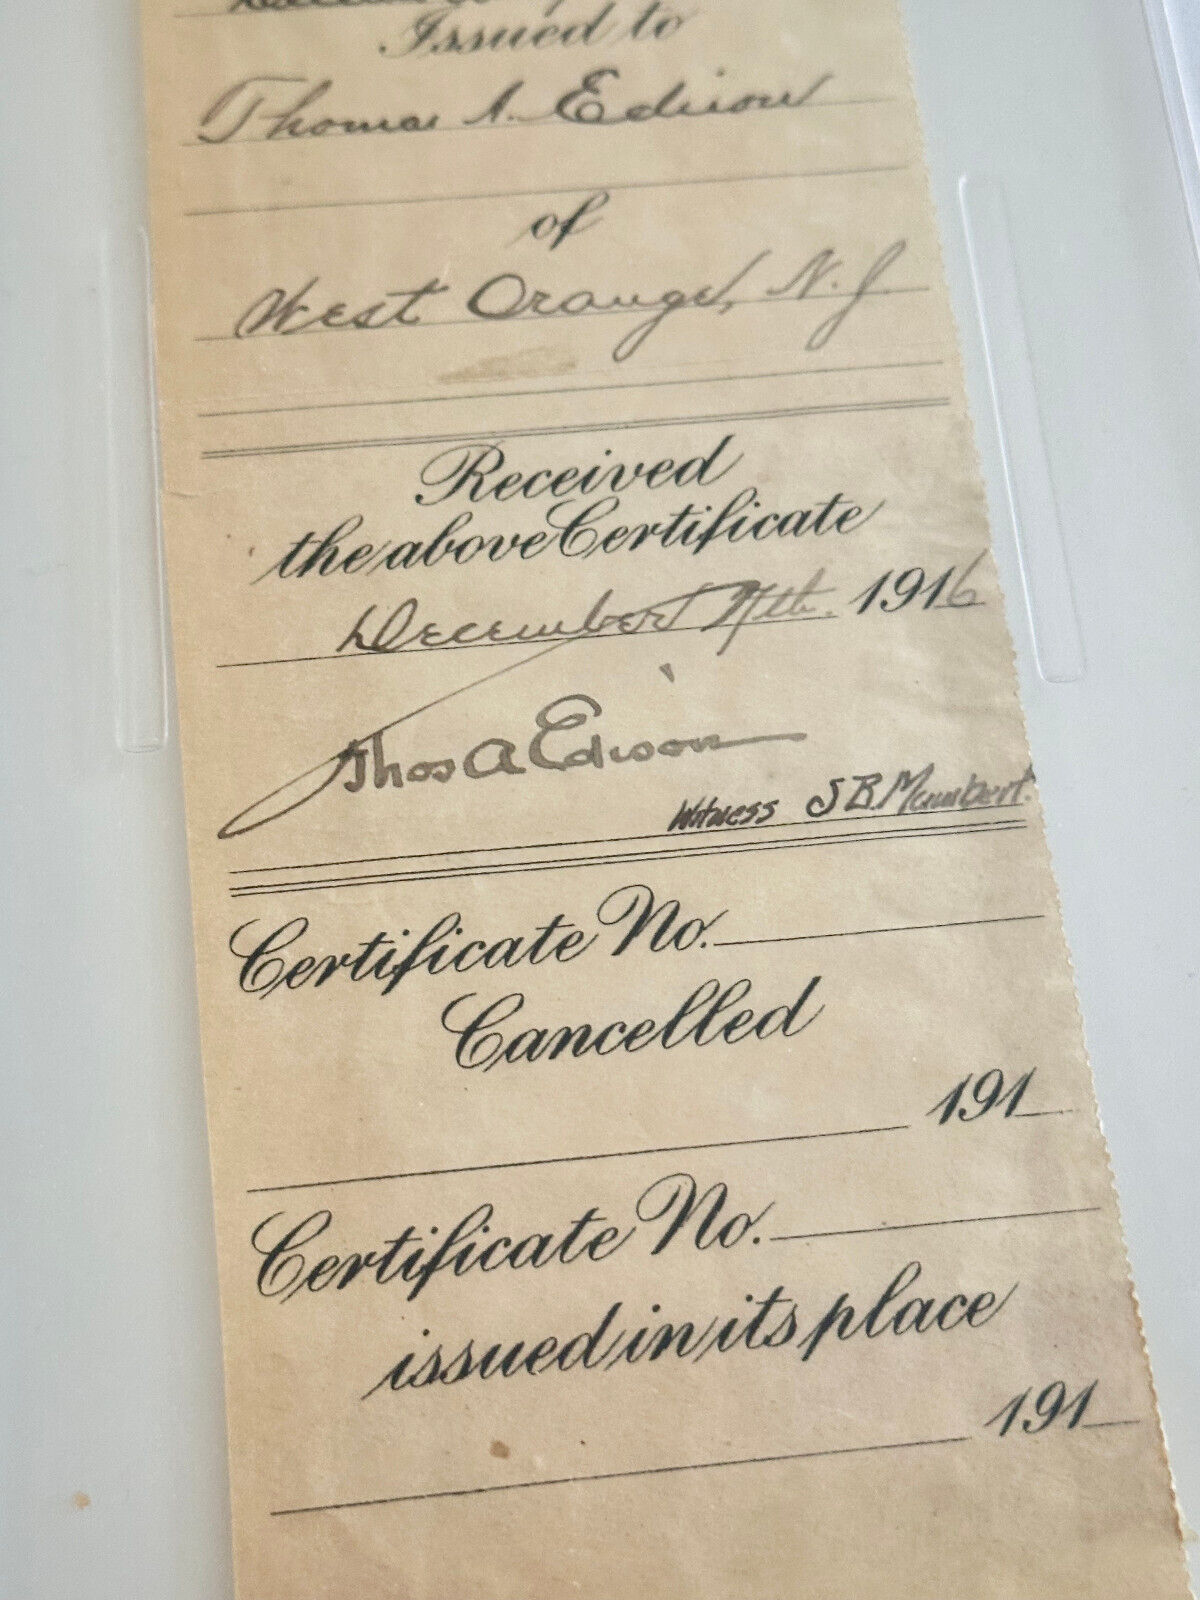 Issued to
Thomas A. Edison
of
West Orange, N.J.
Received
the above Certificate
December 17th. 1916
Thos A Edison
Witness S B. Mambert.
Certificate No.
Cancelled
191
Certificate No.
issued in its place
191